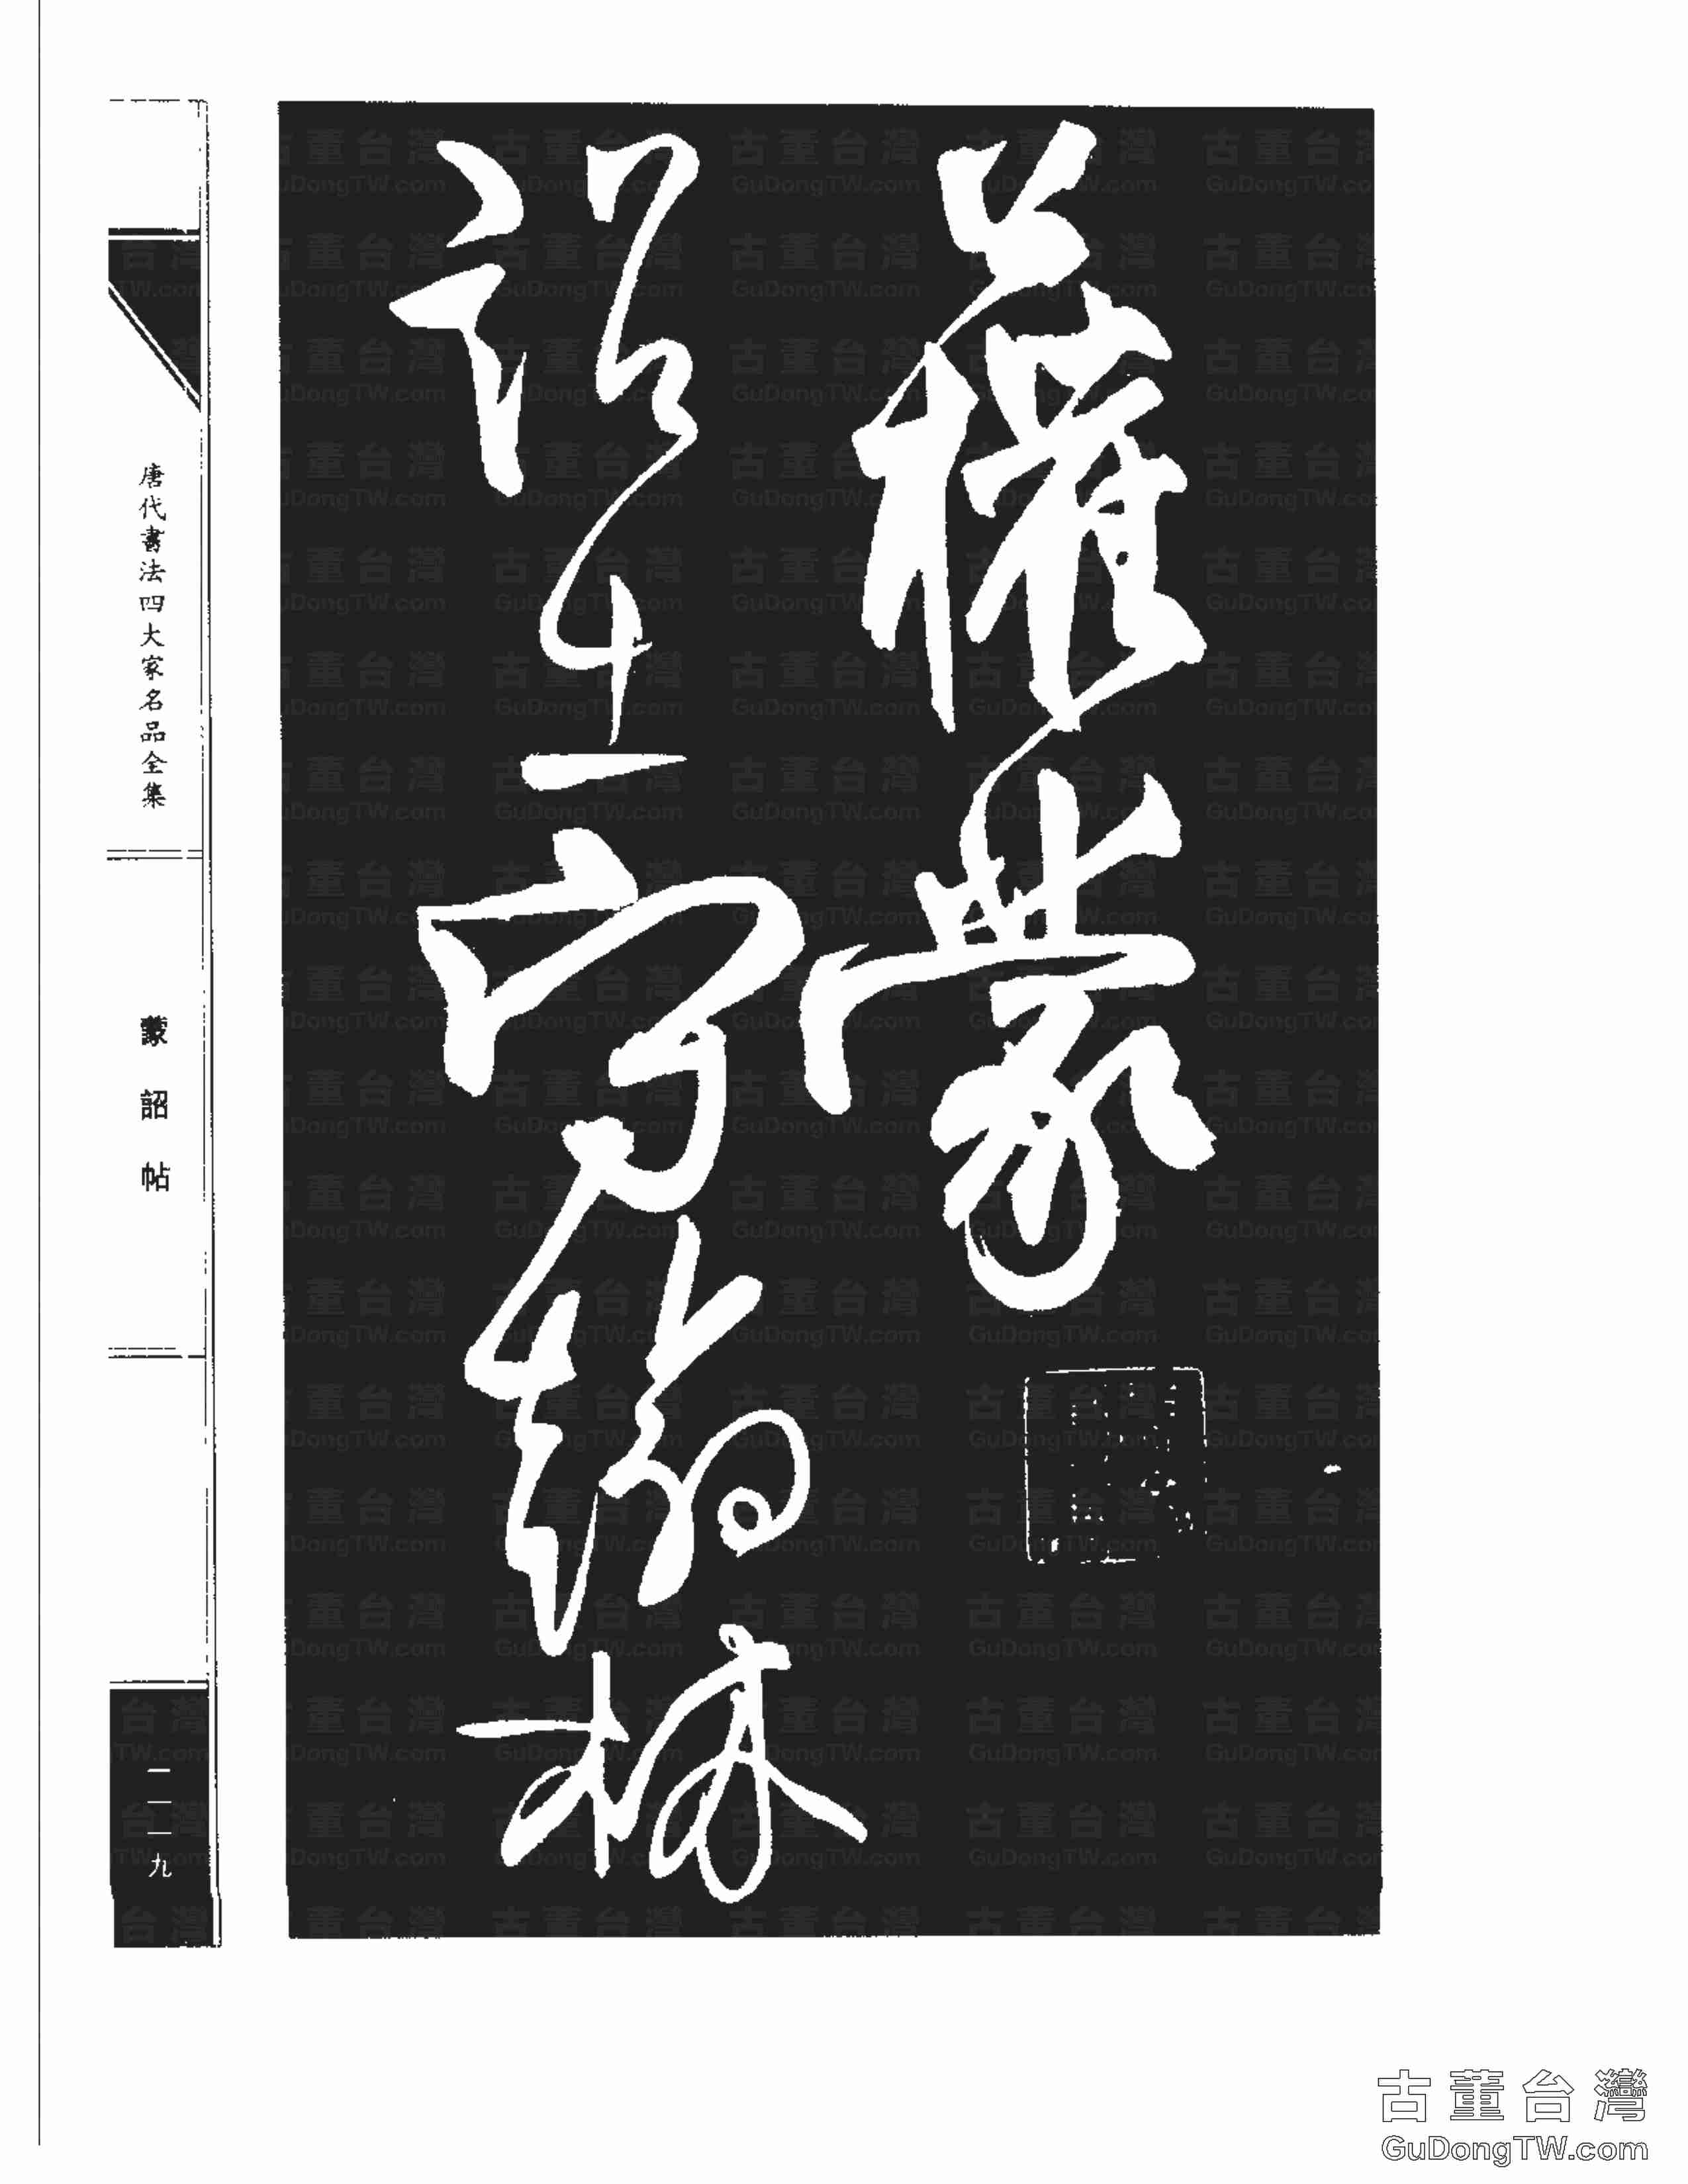 公權蒙
詔出守翰林
唐代書法四大家名品全集
蒙詔帖
一一一九
古董台灣
GuDongTW.com